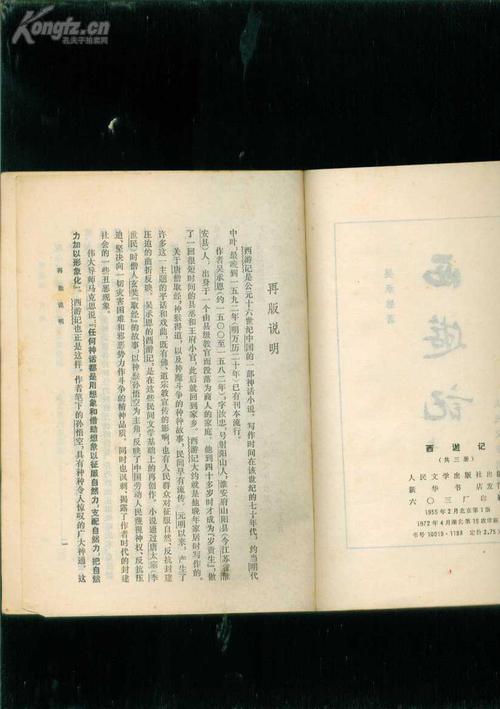 Kongfz.cn
孔夫子拍卖网
西遊记
吴承恩著
西遊记
(共三册)
人民文学出版社出版
新华书店发行
六〇三厂印刷
1955年2月北京第1版
1972年4月湖北第16次印刷
书号10019·1193 定价2.75元
再版说明
西游记是公元十六世纪中国的一部神话小说。写作时间在该世纪的七十年代,约当明代
中叶,最晚到一五九二年(明万历二十年)已有刊本流行。
作者吴承恩(约一五〇〇至一五八二年),字汝忠,号射阳山人,淮安府山阳县(今江苏省淮
安县)人,出身于一个由县级教官而没落为商人的家庭。他到四十多岁时才成为“岁贡生”,做
了一回很短时间的县丞和王府小官,此后就回到家乡。西游记大约就是他晚年家居时写作的。
关于唐僧取经、神猴得道、以及神魔斗争的种种故事,民间早有流传。元明以来,产生了
许多这一主题的平话和戏曲,既有佛、道宗教宣传的影响,也有人民群众对征服自然、反抗封建
压迫的曲折反映。吴承恩的西游记,是在这些民间文学基础上的再创作。小说通过唐太宗(李
世民)时僧人玄奘“取经”的故事,以神猴孙悟空为主角,反映了中国劳动人民蔑视神权、反抗压
迫、坚决向一切灾害困难和邪恶势力作斗争的精神品质。同时也讽刺、揭露了作者时代的封建
社会的一些丑恶现象。
伟大导师马克思说:“任何神话都是用想象和借助想象以征服自然力,支配自然力,把自然
力加以形象化”。西游记也正是这样。作者笔下的孙悟空,具有种种令人惊叹的广大神通。这
再版说明
一